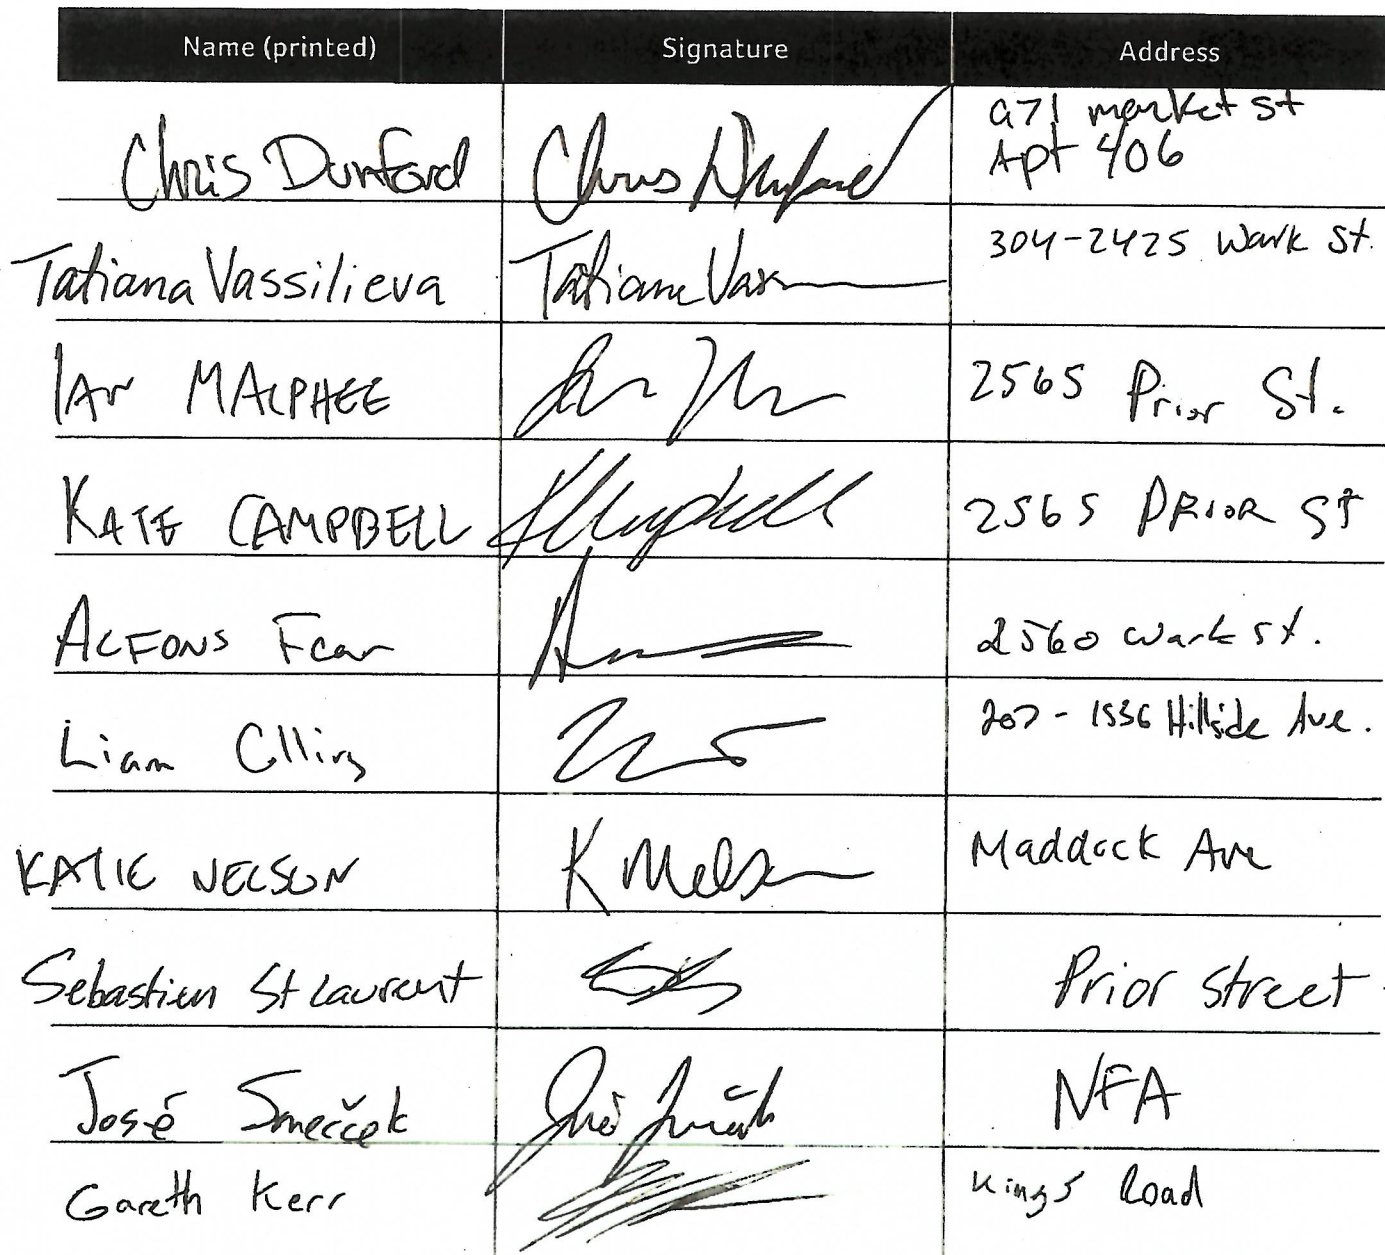 Name (printed) Signature Address
Chris Dunford Chris Dunford 971 market st
Apt 406
Tatiana Vassilieva Tatiana Vass 304-2425 Wark St.
IAN MACPHEE 2565 Prior St.
KATE CAMPBELL KCampbell 2565 PRIOR ST
ALFONS Fear 2560 Wark st.
Liam Collins 207-1536 Hillside Ave.
KATIE NELSON K Nelson Maddock Ave
Sebastien St Laurent Prior street
José Smerček NFA
Gareth Kerr Kings Road